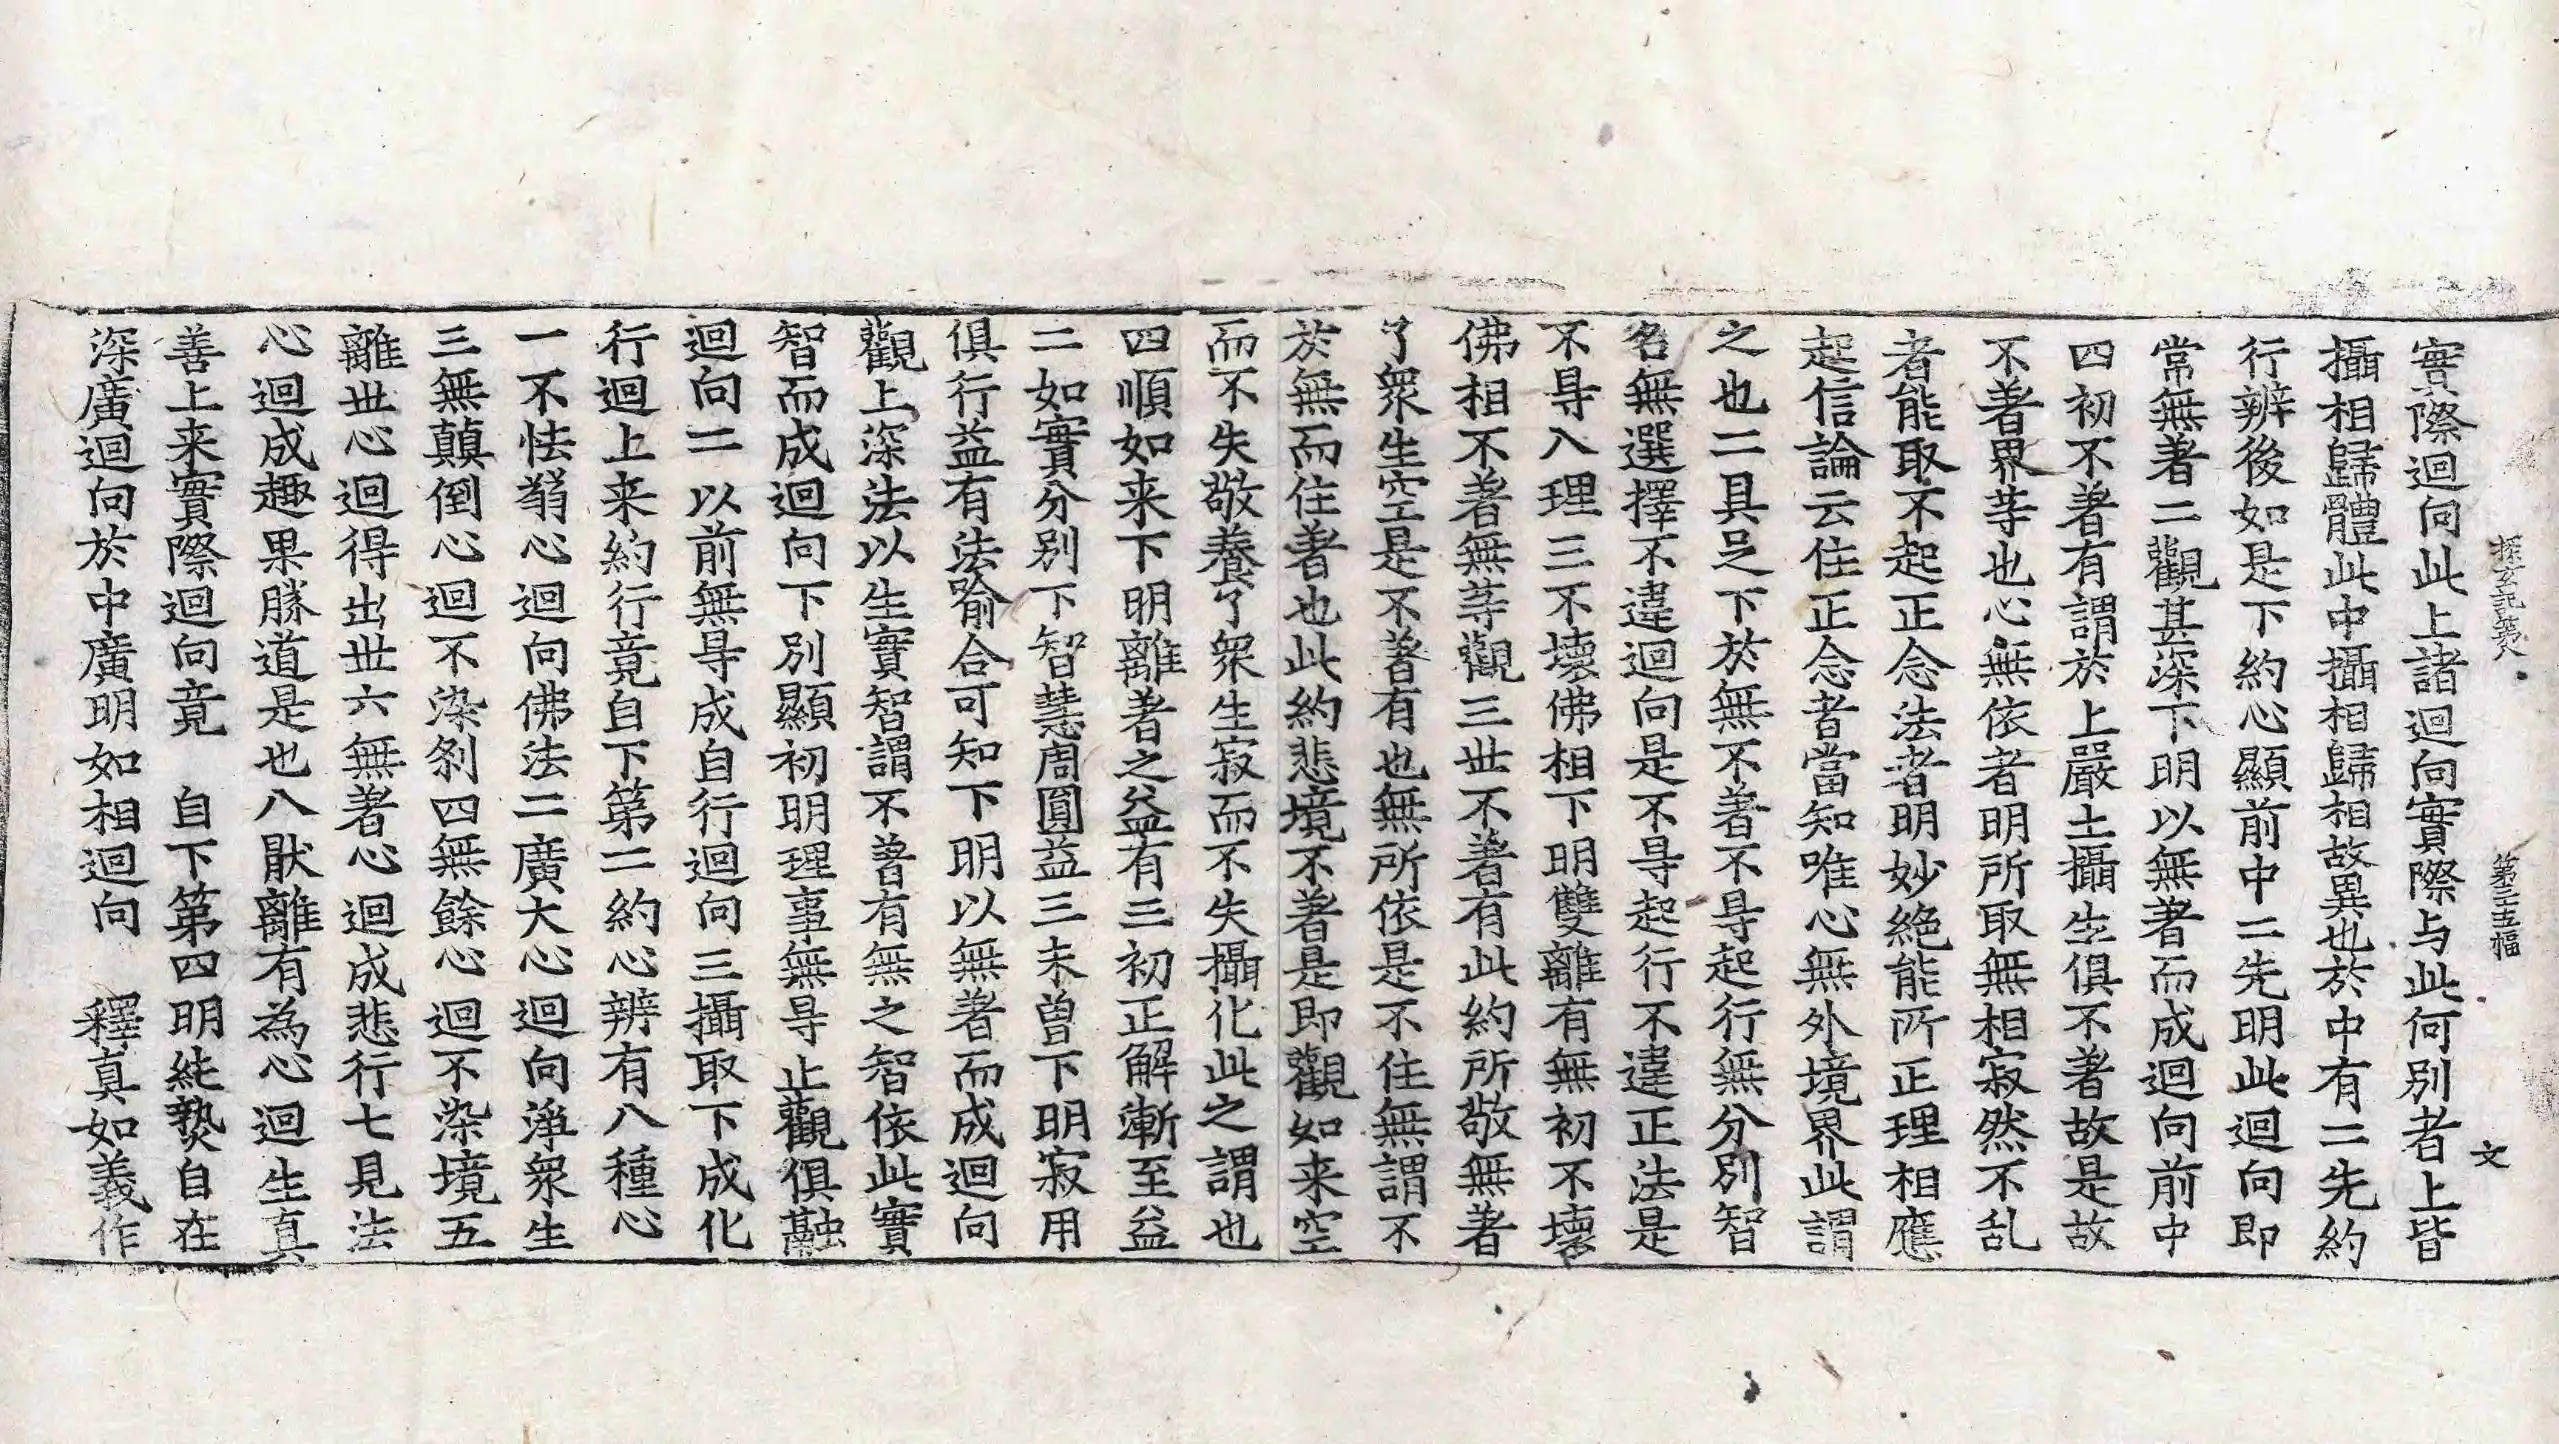 探玄記第八　第三五幅　文
實際迴向此上諸迴向實際与此何別者上皆
攝相歸體此中攝相歸相故異也於中有二先約
行辨後如是下約心顯前中二先明此迴向即
常無著二觀甚深下明以無著而成迴向前中
四初不著有謂於上嚴土攝生俱不著故是故
不著界等也心無依者明所取無相寂然不乱
者能取不起正念法者明妙絶能所正理相應
起信論云住正念者當知唯心無外境界此謂
之也二具足下於無不著不㝵起行無分別智
名無選擇不違迴向是不㝵起行不違正法是
不㝵入理三不壞佛相下明雙離有無初不壞
佛相不著無等觀三世不著有此約所敬無著
了衆生空是不著有也無所依是不住無謂不
於無而住著也此約悲境不著是即觀如来空
而不失敬養了衆生寂而不失攝化此之謂也
四順如来下明離著之益有三初正解漸至益
二如實分别下智慧周圓益三未曽下明寂用
俱行益有法喻合可知下明以無著而成迴向
觀上深法以生實智謂不著有無之智依此實
智而成迴向下別顯初明理事無㝵止觀俱融
迴向二以前無㝵成自行迴向三攝取下成化
行迴上来約行竟自下第二約心辨有八種心
一不怯弱心迴向佛法二廣大心迴向淨衆生
三無顛倒心迴不染刹四無餘心迴不染境五
離世心迴得出世六無著心迴成悲行七見法
心迴成趣果勝道是也八猒離有為心迴生真
善上来實際迴向竟　自下第四明純熟自在
深廣迴向於中廣明如相迴向　釋真如義作